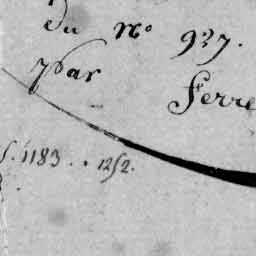 du n° 937.
par Ferre
f. 1183. . 1252.